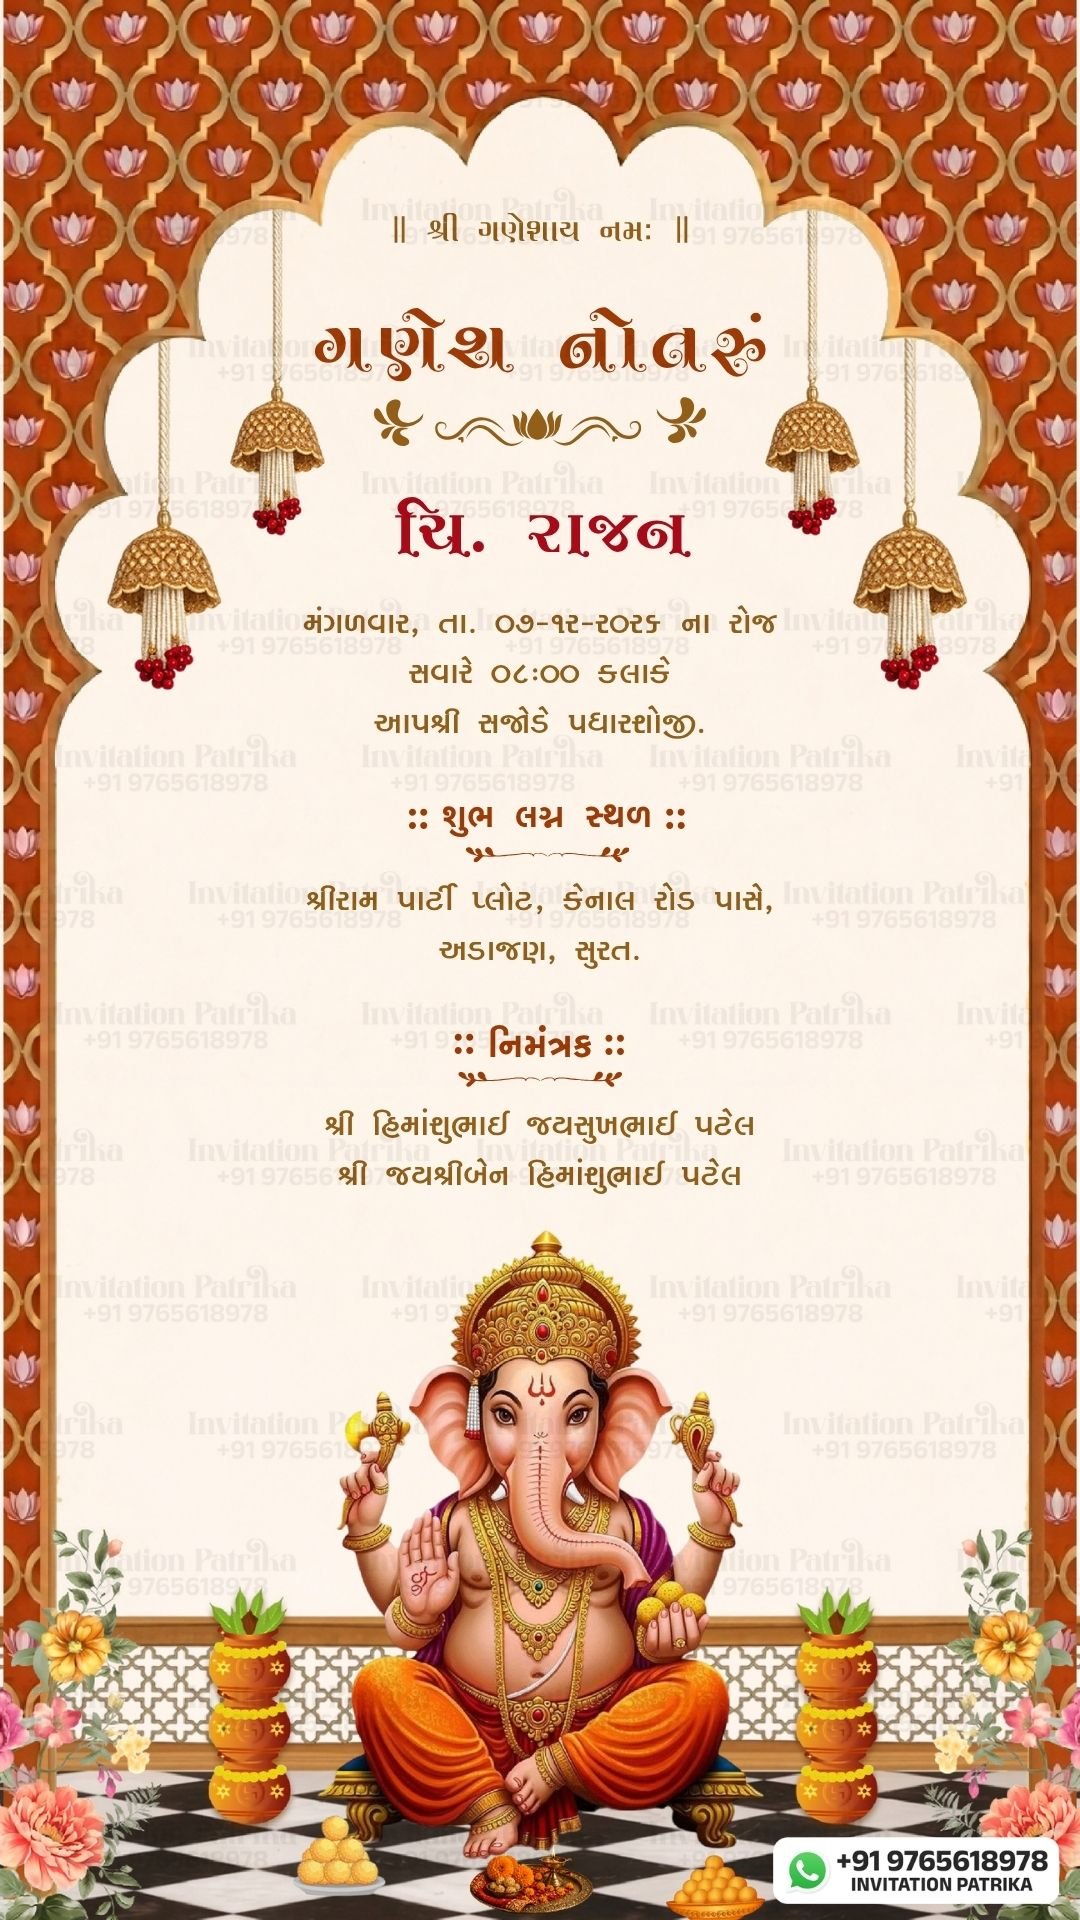 ॥ શ્રી ગણેશાય નમઃ ॥
ગણેશ નોતરું
ચિ. રાજન
મંગળવાર, તા. ૦૭-૧૨-૨૦૨૬ ના રોજ
સવારે ૦૮:૦૦ કલાકે
આપશ્રી સજોડે પધારશોજી.
:: શુભ લગ્ન સ્થળ ::
શ્રીરામ પાર્ટી પ્લોટ, કેનાલ રોડ પાસે,
અડાજણ, સુરત.
:: નિમંત્રક ::
શ્રી હિમાંશુભાઈ જયસુખભાઈ પટેલ
શ્રી જયશ્રીબેન હિમાંશુભાઈ પટેલ
+91 9765618978
INVITATION PATRIKA